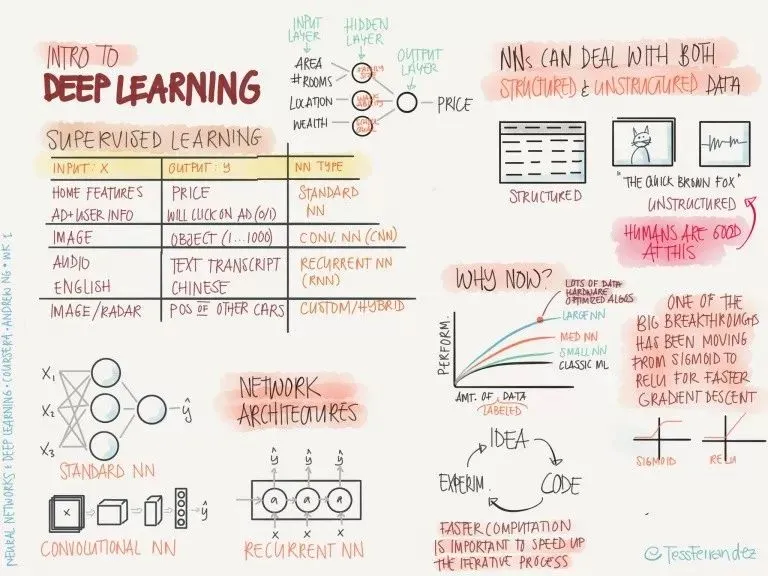 INTRO TO
DEEP LEARNING
INPUT LAYER
HIDDEN LAYER
OUTPUT LAYER
AREA
#ROOMS
LOCATION
WEALTH
PRICE
SUPERVISED LEARNING
INPUT: X OUTPUT: Y NN TYPE
HOME FEATURES PRICE STANDARD
AD+USER INFO WILL CLICK ON AD (0/1) NN
IMAGE OBJECT (1...1000) CONV. NN (CNN)
AUDIO TEXT TRANSCRIPT RECURRENT NN
ENGLISH CHINESE (RNN)
IMAGE/RADAR POS OF OTHER CARS CUSTOM/HYBRID
NNs CAN DEAL WITH BOTH
STRUCTURED & UNSTRUCTURED DATA
STRUCTURED
"THE QUICK BROWN FOX"
UNSTRUCTURED
HUMANS ARE GOOD
AT THIS
WHY NOW?
LOTS OF DATA
HARDWARE
OPTIMIZED ALGOS
LARGE NN
MED NN
SMALL NN
CLASSIC ML
PERFORM.
AMT. OF DATA
LABELED
ONE OF THE
BIG BREAKTHROUGHS
HAS BEEN MOVING
FROM SIGMOID TO
RELU FOR FASTER
GRADIENT DESCENT
SIGMOID
RELU
X1
X2
X3
ŷ
STANDARD NN
NETWORK
ARCHITECTURES
x
ŷ
CONVOLUTIONAL NN
ŷ ŷ ŷ
a a a
x x x
RECURRENT NN
IDEA
EXPERIM. CODE
FASTER COMPUTATION
IS IMPORTANT TO SPEED UP
THE ITERATIVE PROCESS
NEURAL NETWORKS & DEEP LEARNING • COURSERA • ANDREW NG • WK 1
@TessFerrandez